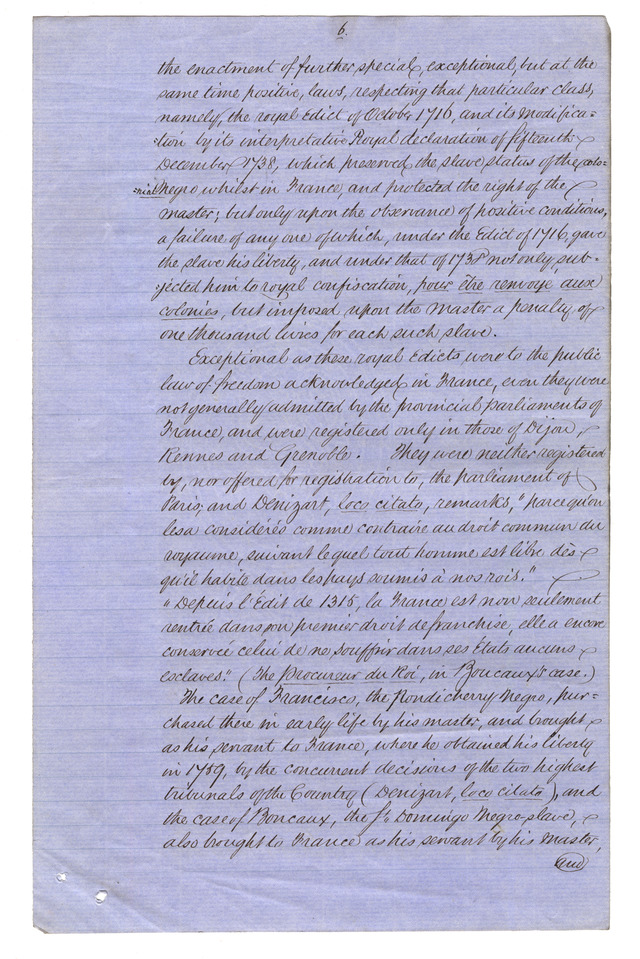 6.
the enactment of further special, exceptional, but at the
same time positive, laws, respecting that particular class,
namely, the royal Edict of October 1716, and its Modifica-
-tion by its interpretative Royal declaration of fifteenth
December 1738, which preserved the slave status of the colo-
-nial Negro whilst in France, and protected the right of the
master; but only upon the observance of positive conditions,
a failure of any one of which, under the Edict of 1716, gave
the slave his liberty, and under that of 1738 not only sub-
-jected him to royal confiscation, pour être renvoye aux
colonies, but imposed upon the Master a penalty of
one thousand livres for each such slave.
Exceptional as these royal Edicts were to the public
law of freedom acknowledged in France, even they were
not generally admitted by the provincial Parliaments of
France, and were registered only in those of Dijon,
Rennes and Grenoble. They were neither registered
by, nor offered for registration to, the parliament of
Paris, and Denizart, loco citato, remarks, "parcequ'on
lesa considérés comme contraire au droit commun du
royaume, suivant lequel tout homme est libre dès
qu'il habite dans les pays soumis à nos rois."
"Depuis l'Édit de 1315, la France est non seulement
rentrée dans son premier droit de franchise, elle a encore
conservée celui de ne souffrir dans ses États aucuns
esclaves." (The Procureur du Roi, in Boucaux's case.)
The case of Francisco, the Pondicherry Negro, pur-
chased there in early life by his master, and brought
as his servant to France, where he obtained his liberty
in 1759, by the concurrent decisions of the two highest
tribunals of the Country (Denizart, loco citato), and
the case of Boucaux, the St. Domingo Negro-slave,
also brought to France as his servant by his Master,
and